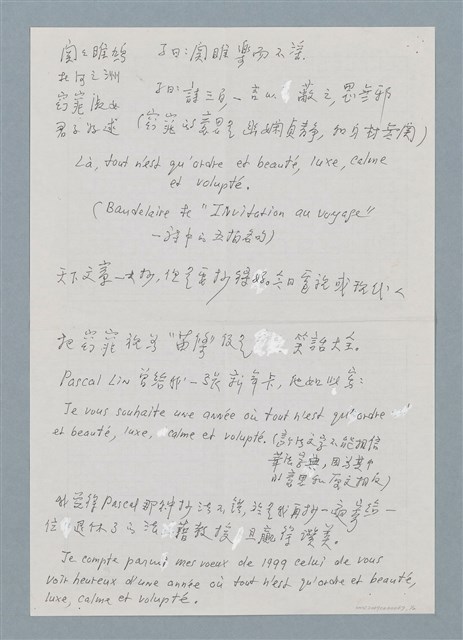 關關雎鳩 子曰：關雎樂而不淫
在河之洲
窈窕淑女 子曰：詩三百，一言以蔽之，思無邪
君子好逑 (窈窕的意思是幽嫻貞靜，和身材無關)
Là, tout n'est qu'ordre et beauté, luxe, calme
et volupté.
(Baudelaire 在 "Invitation au voyage"
一詩中的五拍名句)
天下文章一大抄，但是要抄得好。今日電視或現代人
把窈窕視為"苗條"像是 笑話大全。
Pascal Lin 曾給我一張新年卡，他如此寫：
Je vous souhaite une année où tout n'est qu'ordre
et beauté, luxe, calme et volupté. (詩的文字不能相信
華法字典，因為其中
的意思和原文相反)
我覺得 Pascal 那種抄法不錯，於是我再抄一遍寄給一
位退休了的法籍教授，且贏得讚美。
Je compte parmi mes voeux de 1999 celui de vous
voir heureux d'une année où tout n'est qu'ordre et beauté,
luxe, calme et volupté.